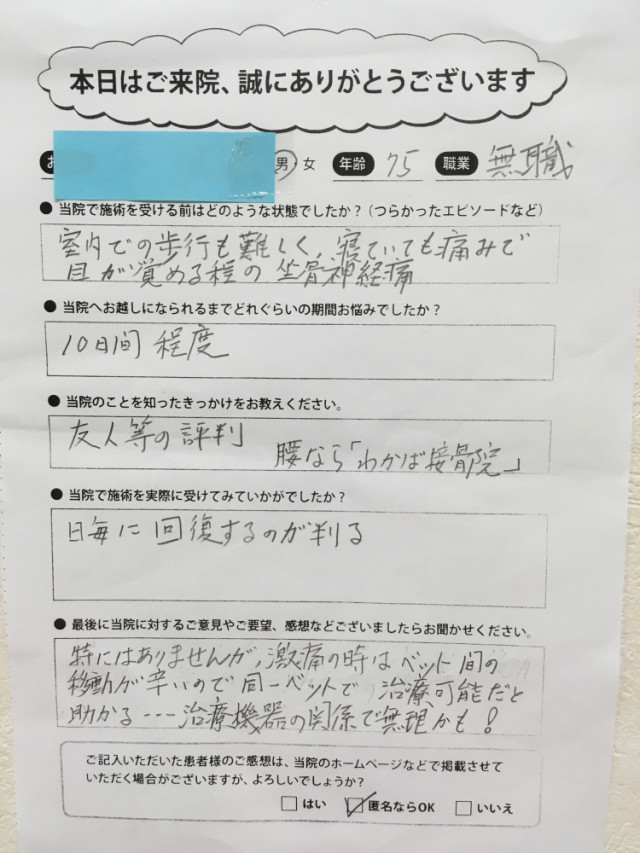 本日はご来院、誠にありがとうございます
お 男・女 年齢 75 職業 無職
● 当院で施術を受ける前はどのような状態でしたか？（つらかったエピソードなど）
室内での歩行も難しく、寝ていても痛みで
目が覚める程の坐骨神経痛
● 当院へお越しになられるまでどれぐらいの期間お悩みでしたか？
10日間程度
● 当院のことを知ったきっかけをお教えください。
友人等の評判
腰なら「わかば接骨院」
● 当院で施術を実際に受けてみていかがでしたか？
日毎に回復するのが判る
● 最後に当院に対するご意見やご要望、感想などございましたらお聞かせください。
特にはありませんが、激痛の時はベット間の
移動が辛いので同一ベットで治療可能だと
助かる---治療機器の関係で無理かも！
ご記入いただいた患者様のご感想は、当院のホームページなどで掲載させて
いただく場合がございますが、よろしいでしょうか？
□はい ☑匿名ならOK □いいえ